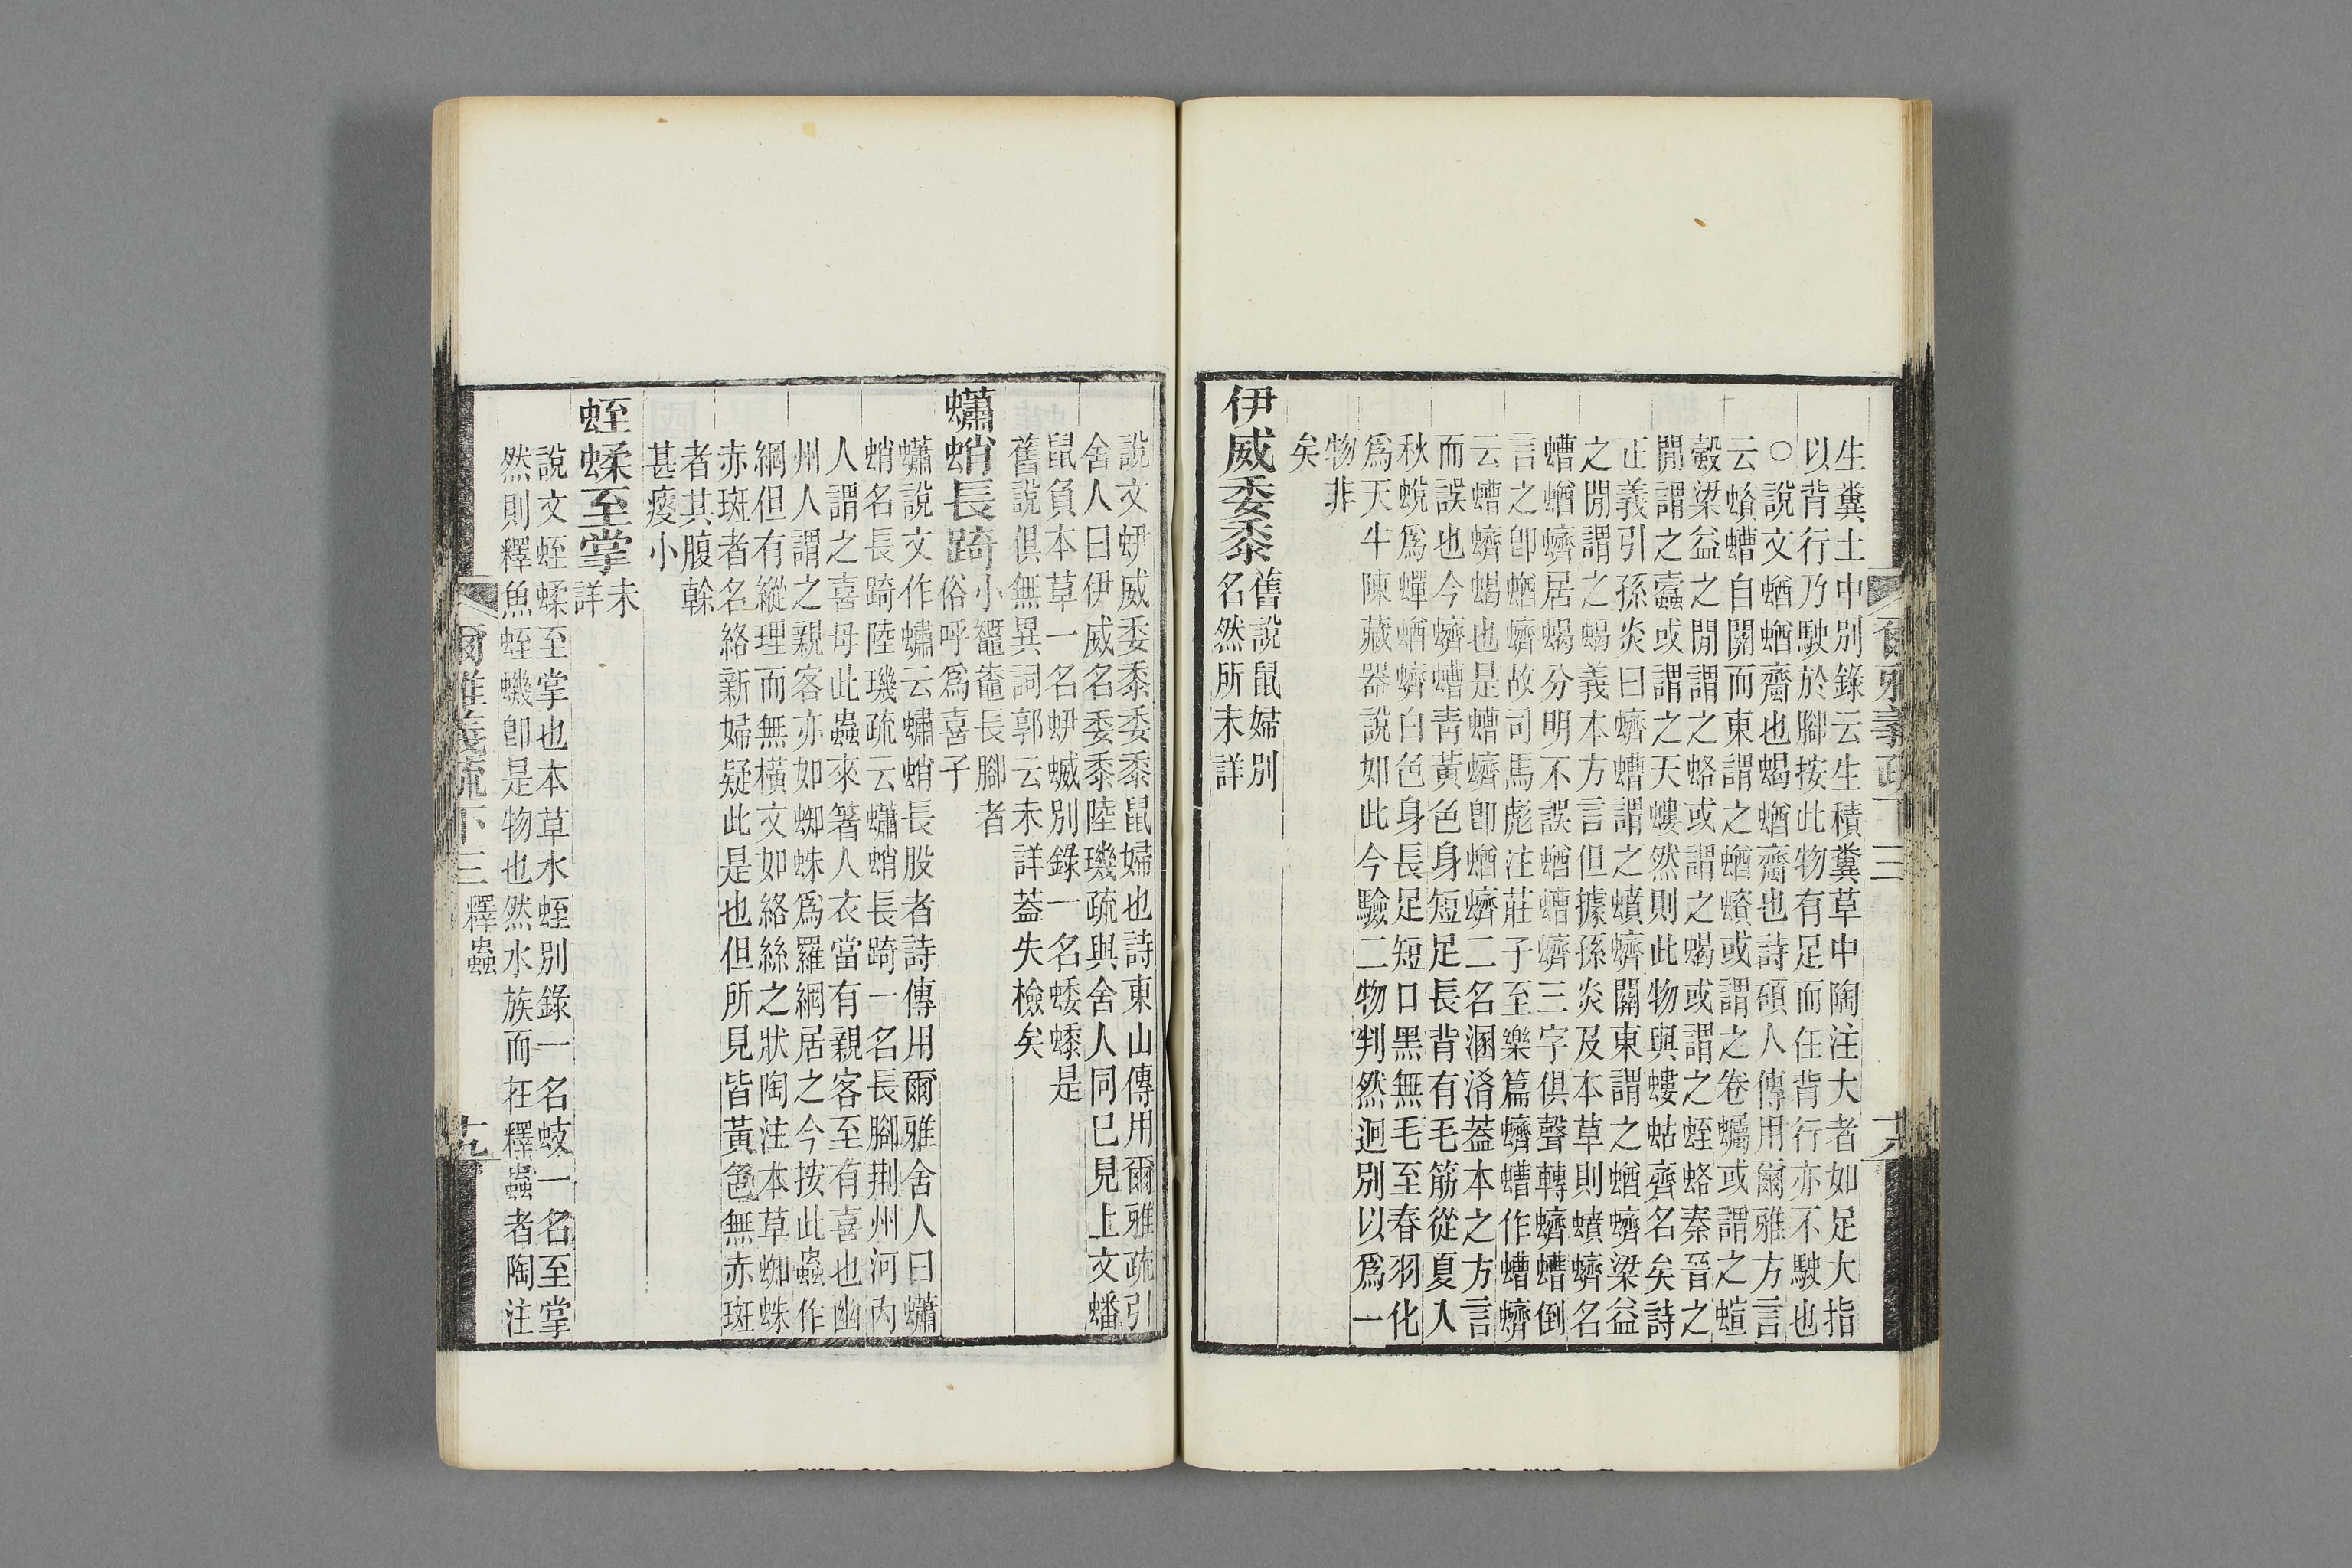 生糞土中別錄云生積糞草中陶注大者如足大指
以背行乃駛於腳按此物有足而任背行亦不駛也
○說文蝤蝤齏也蝎蝤齏也詩碩人傳用爾雅方言
云蟦螬自關而東謂之蝤蠀或謂之卷蠾或謂之蝖
轂梁益之閒謂之蛒或謂之蝎或謂之蛭蛒秦晉之
閒謂之蠹或謂之天螻然則此物與螻蛄齊名矣詩
正義引孫炎曰蠐螬謂之蟦蠐關東謂之蝤蠐梁益
之閒謂之蝎義本方言但據孫炎及本草則蟦蠐名
螬蝤蠐居蝎分明不誤蝤螬蠐三字俱聲轉蠐螬倒
言之卽蝤蠐故司馬彪注莊子至樂篇蠐螬作螬蠐
云螬蠐蝎也是螬蠐卽蝤蠐二名溷淆葢本之方言
而誤也今蠐螬青黃色身短足長背有毛筋從夏入
秋蛻爲蟬蝤蠐白色身長足短口黑無毛至春羽化
爲天牛陳藏器說如此今驗二物判然迥別以爲一
物非
矣
伊威委黍
舊說鼠婦別
名然所未詳
說文蛜威委黍委黍鼠婦也詩東山傳用爾雅疏引
舍人曰伊威名委黍陸璣疏與舍人同已見上文蟠
鼠負本草一名蛜蝛別錄一名蜲䗝是
舊說俱無異詞郭云未詳葢失檢矣
蠨蛸長踦
小鼅鼄長腳者
俗呼爲喜子
蠨說文作蟰云蟰蛸長股者詩傳用爾雅舍人曰蠨
蛸名長踦陸璣疏云蠨蛸長踦一名長腳荆州河內
人謂之喜母此蟲來箸人衣當有親客至有喜也幽
州人謂之親客亦如蜘蛛爲羅網居之今按此蟲作
網但有縱理而無橫文如絡絲之狀陶注本草蜘蛛
赤斑者名絡新婦疑此是也但所見皆黃色無赤斑
者其腹榦
甚瘦小
蛭蝚至掌
未
詳
說文蛭蝚至掌也本草水蛭別錄一名蚑一名至掌
然則釋魚蛭蟣卽是物也然水族而在釋蟲者陶注
爾雅義疏下三 釋蟲 十九